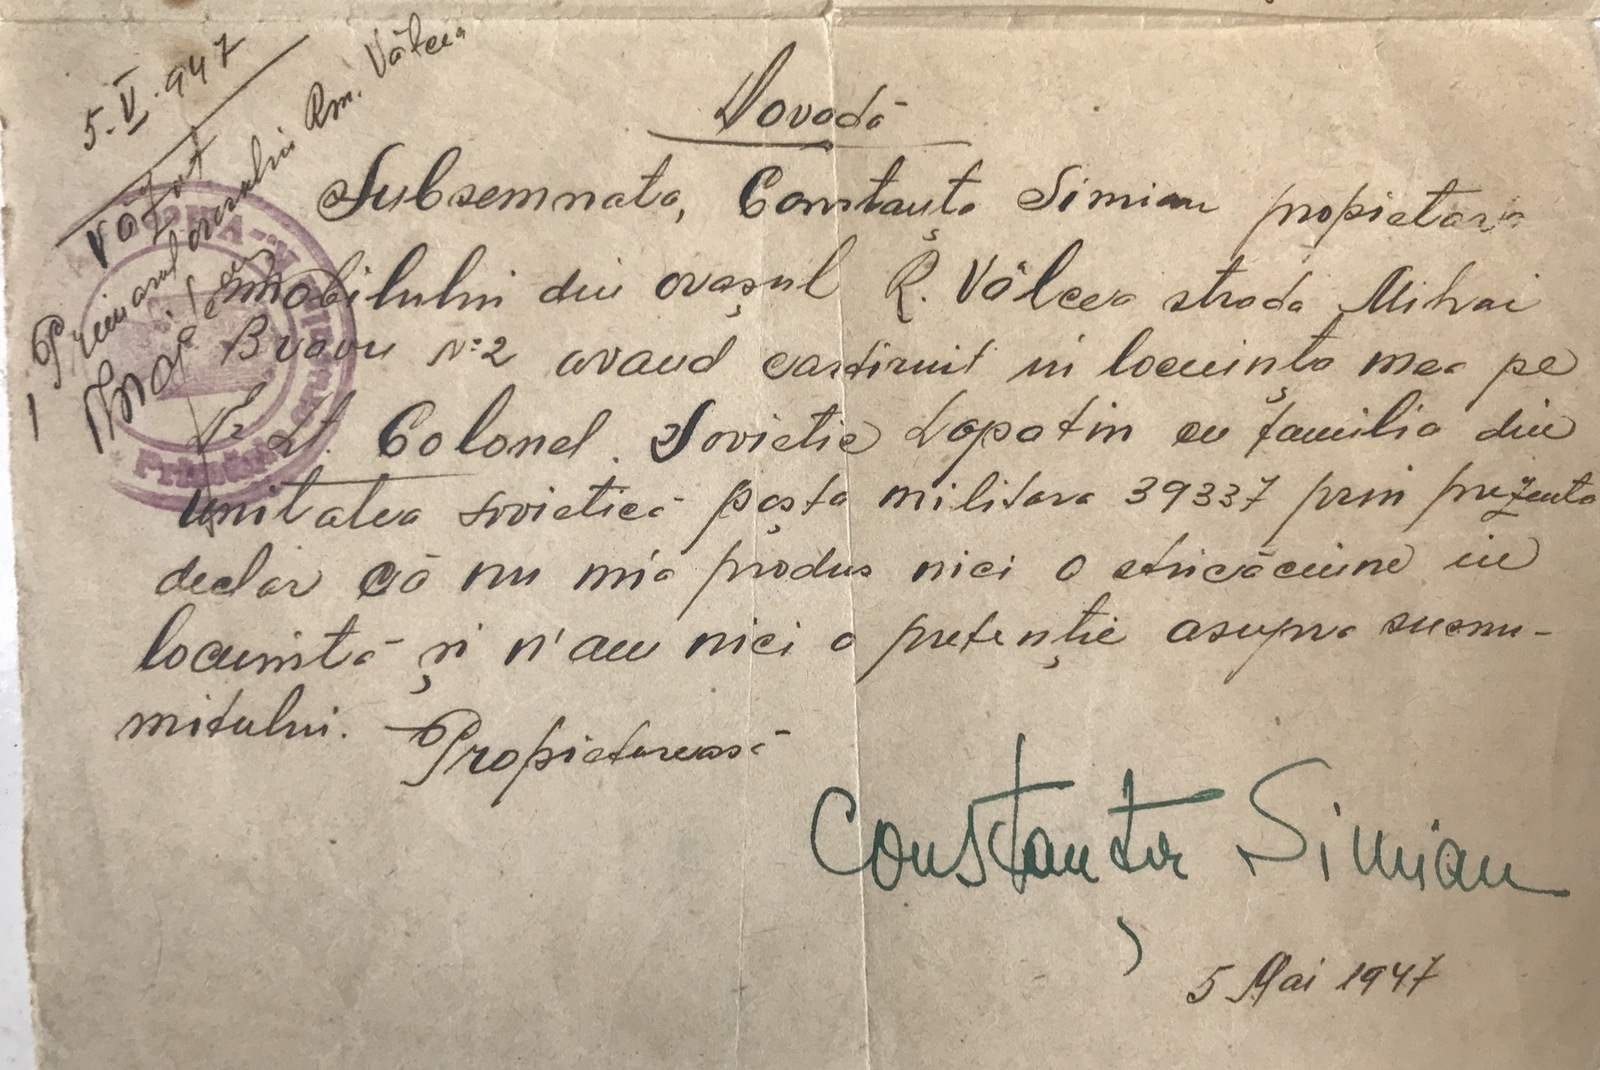 5.V.947
Văzut
Primarul orașului Rm. Vâlcea
Dovadă
Subsemnata, Constanța Simian propietara
imobilului din orașul R. Vâlcea strada Mihai
Bravu No 2 avand cartiruit in locuința mea pe
Lt. Colonel. Sovietic Lopatin cu familia din
unitatea sovietică poșta militara 39337 prin prezenta
declar că nu mi'a produs nici o stricăciune in
locuintă și n'au nici o pretenție asupra susnu-
mitului. Propietareasă
Constanța Simian
5 Mai 1947